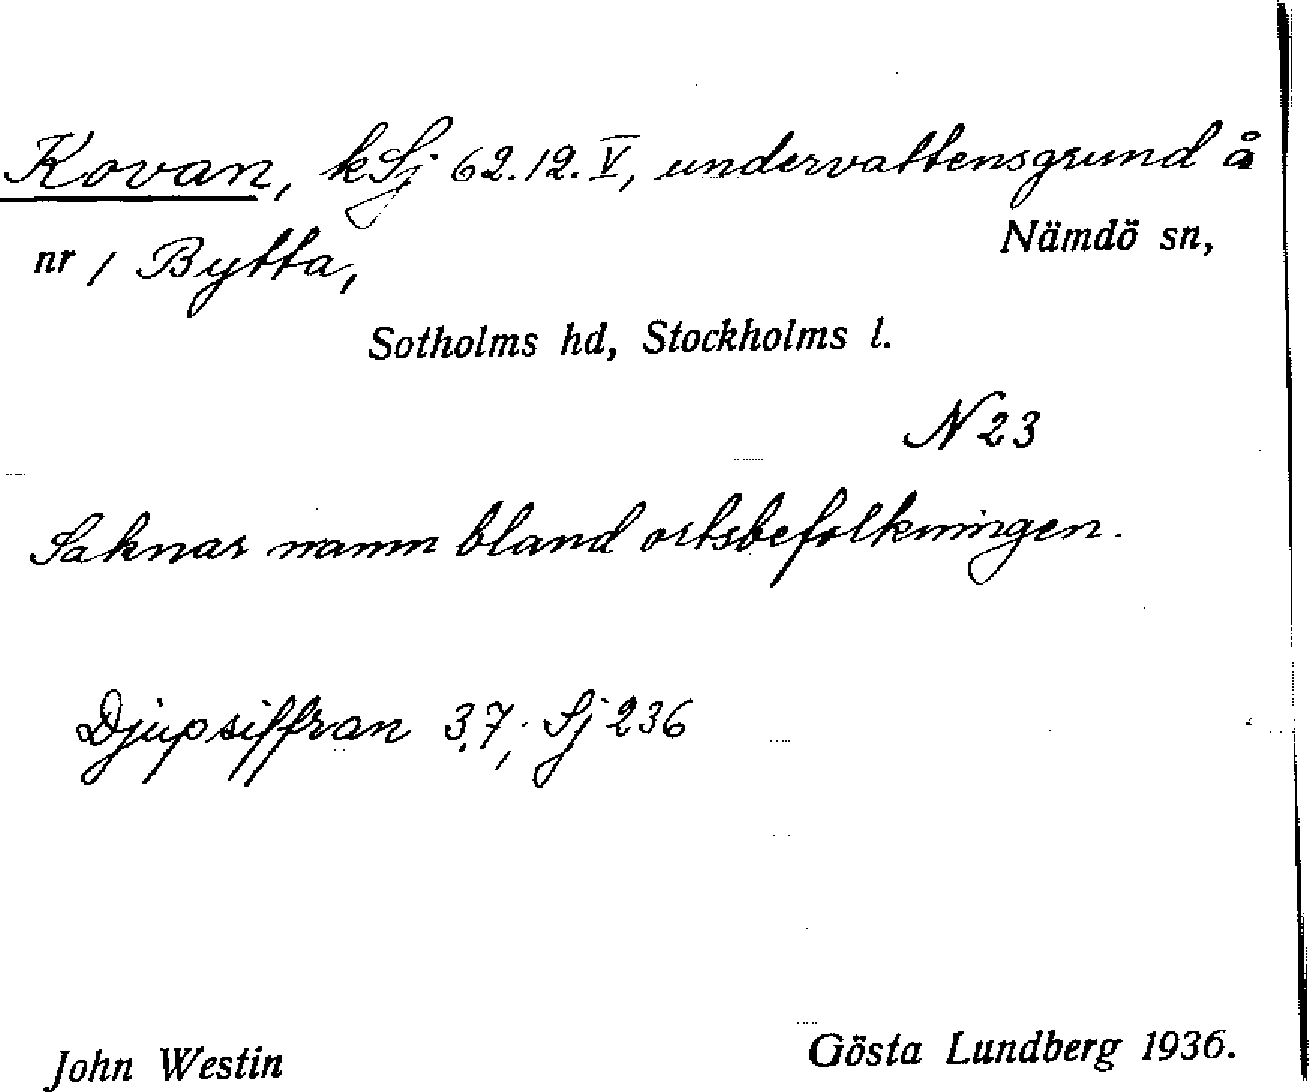 Kovan, kSj 62.12.V, undervattensgrund å
nr 1 Bytta, Nämdö sn,
Sotholms hd, Stockholms l.
N 23
Saknar namn bland ortsbefolkningen.
Djupsiffran 3,7; Sj 236
John Westin Gösta Lundberg 1936.